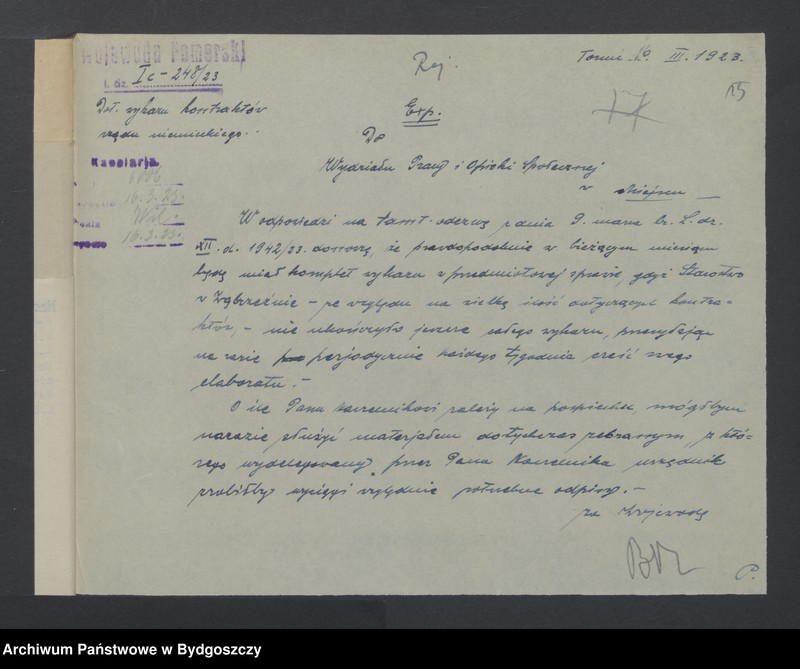 Wojewoda Pomorski
l. dz. Ic-248/23
Rej.
Toruń 10. III. 1923.
15
17
Dot. wykazu kontraktów
rządu niemieckiego.-
Exp.
Do
Wydziału Pracy i Opieki Społecznej
w Miejscu
Kancelarja
16.3.23.
16.3.23.
W odpowiedzi na tamt. odezwę z dnia 9. marca br. L. dz.
XII. d. 1942/23. donoszę, że prawdopodobnie w bieżącym miesiącu
będę miał komplet wykazu w przedmiotowej sprawie, gdyż Starostwo
w Wąbrzeźnie - ze względu na wielką ilość dotyczących kontra-
któw, - nie ukończyło jeszcze całego wykazu, przesyłając
na razie perjodycznie każdego tygodnia część swego
elaboratu.-
O ile Panu Naczelnikowi zależy na pospiechu, mógłbym
narazie służyć materjałem dotychczas zebranym, z któ-
rego wydelegowany przez Pana Naczelnika urzędnik
zrobiłby wyciągi względnie potrzebne odpisy.-
za Wojewodę
P.
Archiwum Państwowe w Bydgoszczy